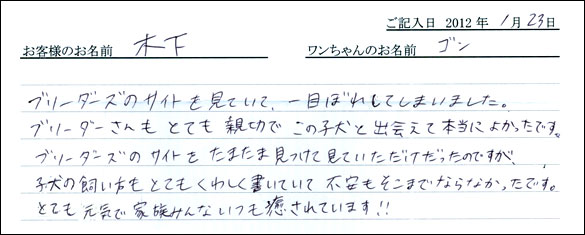 ご記入日 2012年 1月 23日
お客様のお名前 木下 ワンちゃんのお名前 ゴン
ブリーダーズのサイトを見ていて、一目ぼれしてしまいました。
ブリーダーさんもとても親切でこの子犬と出会えて本当によかったです。
ブリーダーズのサイトをたまたま見つけて見ていただけだったのですが、
子犬の飼い方もとてもくわしく書いていて不安もそこまでならなかったです。
とても元気で家族みんないつも癒されています!!